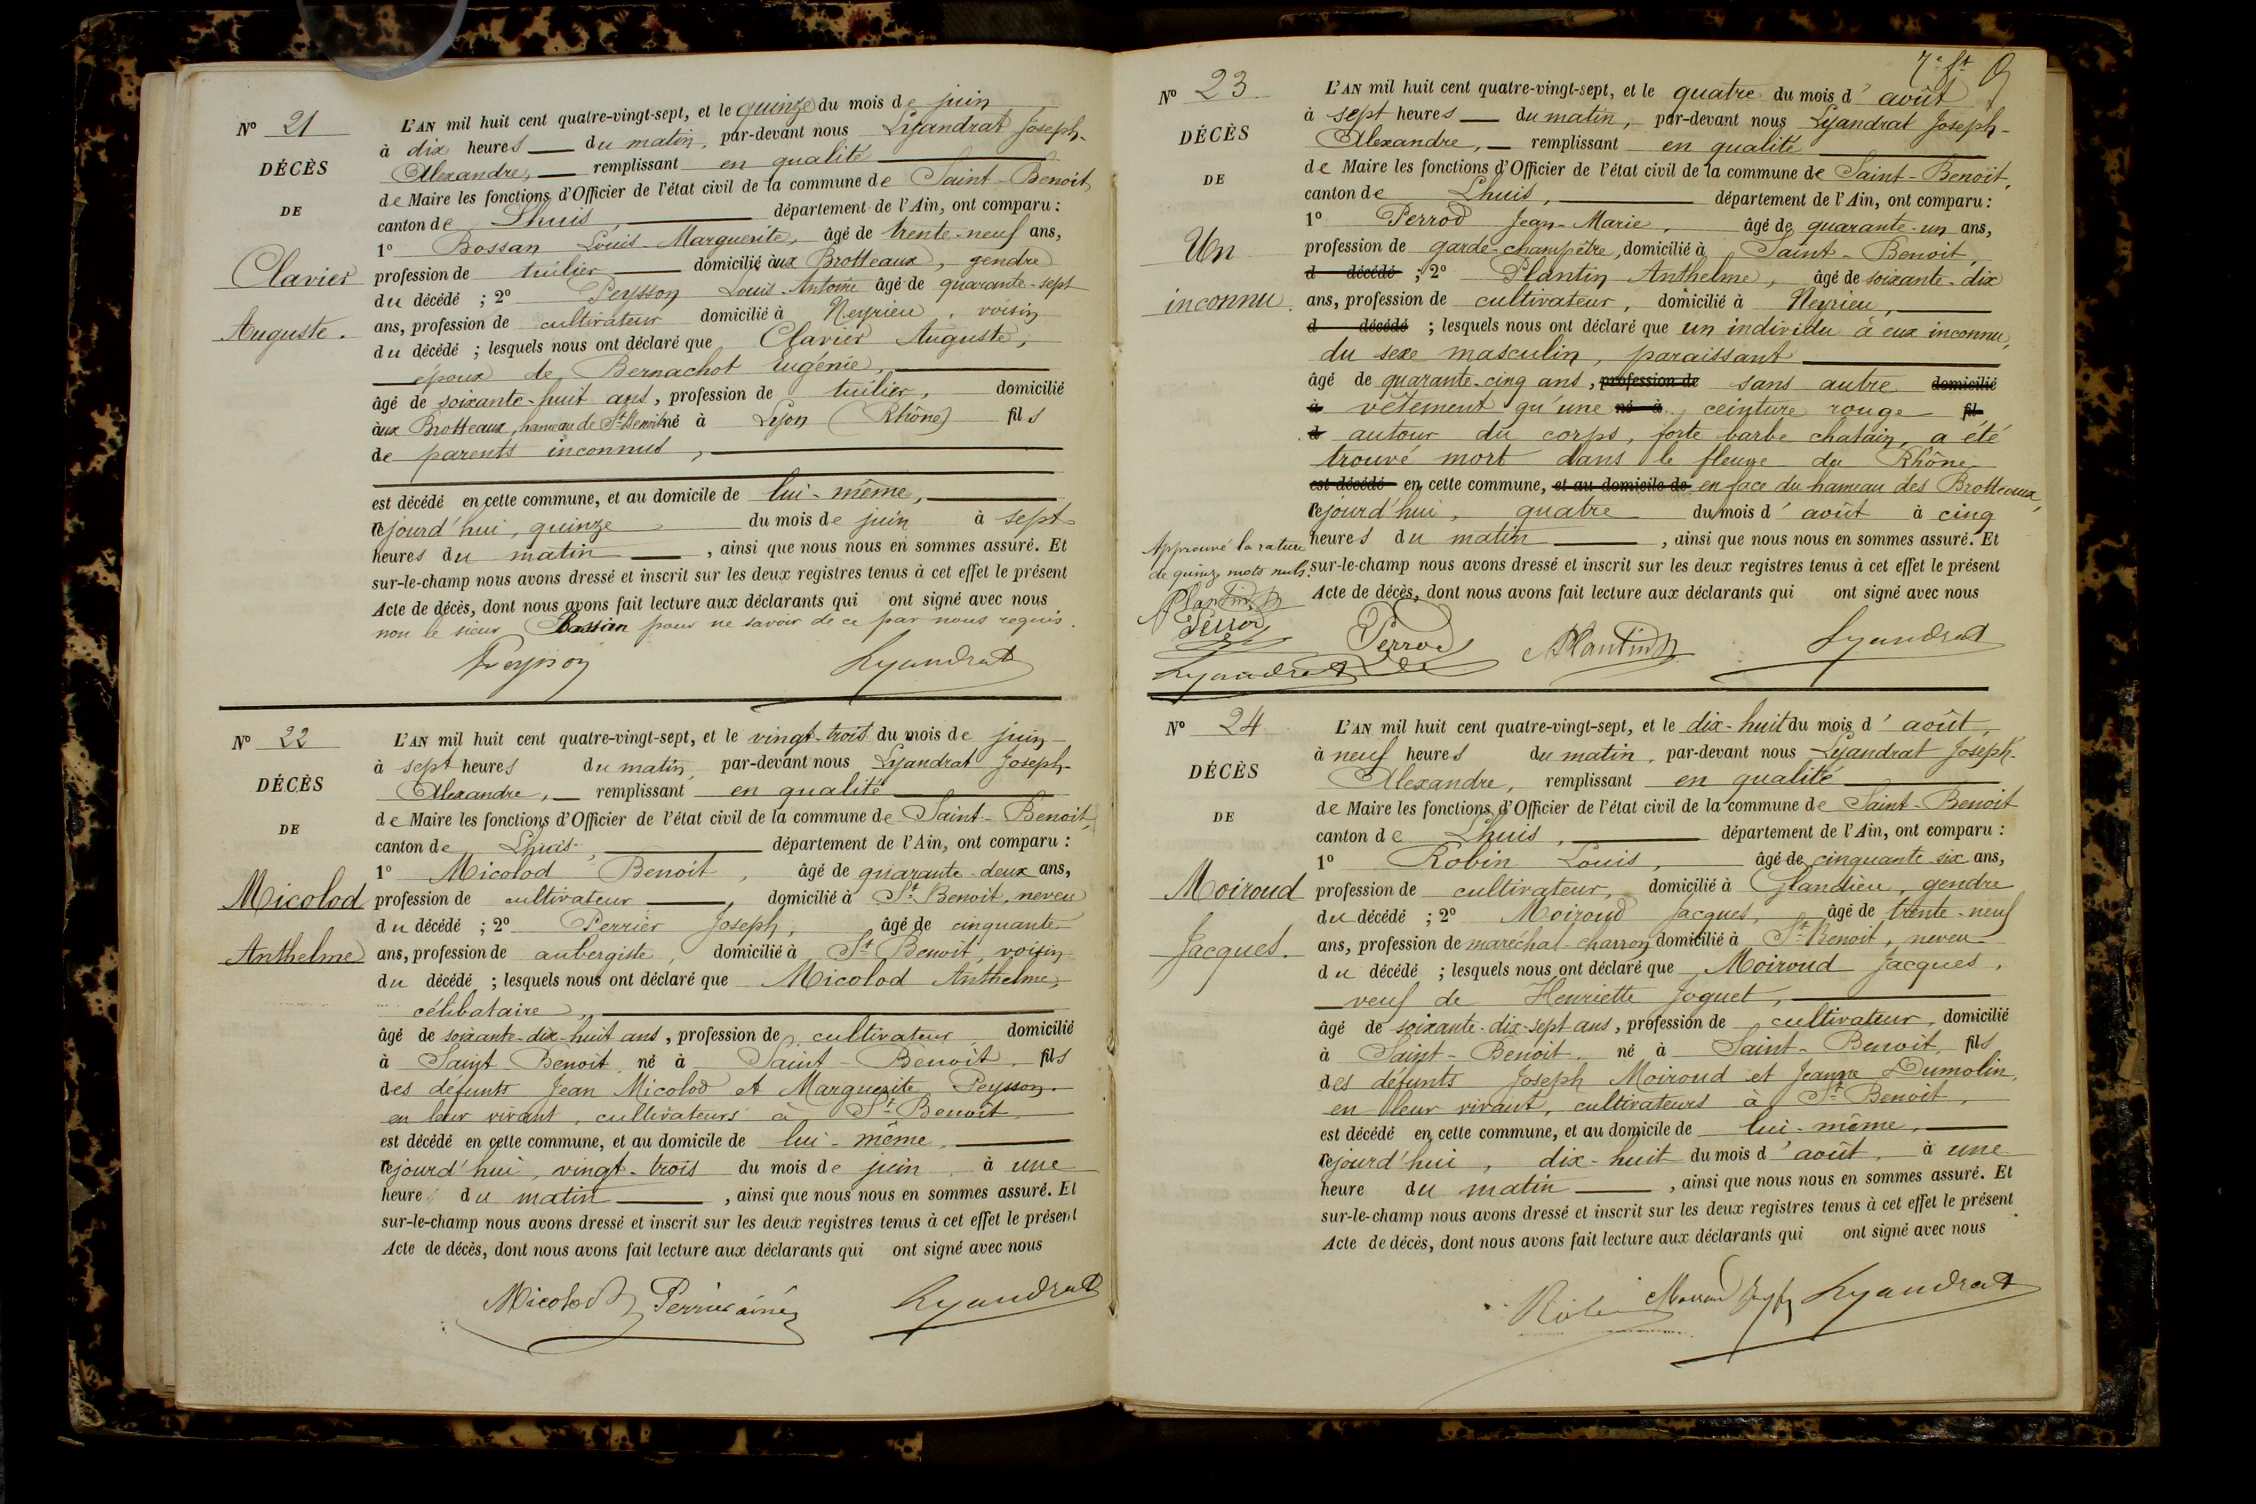 N° 21
DÉCÈS
DE
Clavier
Auguste.
L'AN mil huit cent quatre-vingt-sept, et le quinze du mois de juin
à dix heures du matin, par-devant nous Lyandrat Joseph-
Alexandre, remplissant en qualité
de Maire les fonctions d'Officier de l'état civil de la commune de Saint-Benoit,
canton de Lhuis, département de l'Ain, ont comparu :
1° Bossan Louis-Marguerite, âgé de trente-neuf ans,
profession de tuilier domicilié aux Brotteaux, gendre
du décédé ; 2° Peysson Louis-Antoine âgé de quarante-sept
ans, profession de cultivateur domicilié à Neyrieu, voisin
du décédé ; lesquels nous ont déclaré que Clavier Auguste,
époux de Bernachot Eugénie,
âgé de soixante-huit ans, profession de tuilier, domicilié
aux Brotteaux, hameau de St Benoit né à Lyon (Rhône) fils
de parents inconnus,
est décédé en cette commune, et au domicile de lui-même,
cejourd'hui, quinze du mois de juin à sept
heures du matin, ainsi que nous nous en sommes assuré. Et
sur-le-champ nous avons dressé et inscrit sur les deux registres tenus à cet effet le présent
Acte de décès, dont nous avons fait lecture aux déclarants qui ont signé avec nous
non le sieur Bossan pour ne savoir de ce par nous requis.
Peysson Lyandrat
N° 22
DÉCÈS
DE
Micolod
Anthelme
L'AN mil huit cent quatre-vingt-sept, et le vingt-trois du mois de juin
à sept heures du matin, par-devant nous Lyandrat Joseph-
Alexandre, remplissant en qualité
de Maire les fonctions d'Officier de l'état civil de la commune de Saint-Benoit,
canton de Lhuis, département de l'Ain, ont comparu :
1° Micolod Benoit, âgé de quarante-deux ans,
profession de cultivateur, domicilié à St Benoit, neveu
du décédé ; 2° Perrier Joseph, âgé de cinquante
ans, profession de aubergiste, domicilié à St Benoit, voisin
du décédé ; lesquels nous ont déclaré que Micolod Anthelme,
célibataire,
âgé de soixante-dix-huit ans, profession de cultivateur domicilié
à Saint-Benoit né à Saint-Benoit, fils
des défunts Jean Micolod et Marguerite Peysson.
en leur vivant, cultivateurs à St Benoit
est décédé en cette commune, et au domicile de lui-même,
cejourd'hui, vingt-trois du mois de juin, à une
heure du matin, ainsi que nous nous en sommes assuré. Et
sur-le-champ nous avons dressé et inscrit sur les deux registres tenus à cet effet le présent
Acte de décès, dont nous avons fait lecture aux déclarants qui ont signé avec nous
Micolod Perrier ainé Lyandrat
7e ft
N° 23
DÉCÈS
DE
Un
inconnu.
L'AN mil huit cent quatre-vingt-sept, et le quatre du mois d'août
à sept heures du matin, par-devant nous Lyandrat Joseph-
Alexandre, remplissant en qualité
de Maire les fonctions d'Officier de l'état civil de la commune de Saint-Benoit,
canton de Lhuis, département de l'Ain, ont comparu :
1° Perrod Jean-Marie, âgé de quarante-un ans,
profession de garde-champêtre, domicilié à Saint-Benoit,
d décédé ; 2° Plantin Anthelme, âgé de soixante-dix
ans, profession de cultivateur, domicilié à Neyrieu,
d décédé ; lesquels nous ont déclaré que un individu à eux inconnu,
du sexe masculin, paraissant
âgé de quarante-cinq ans, profession de sans autre domicilié
à vêtement qu'une né à ceinture rouge fil
d autour du corps, forte barbe chatain, a été
trouvé mort dans le fleuve du Rhône
est décédé en cette commune, et au domicile de en face du hameau des Brotteaux,
cejourd'hui, quatre du mois d'août à cinq
heures du matin, ainsi que nous nous en sommes assuré. Et
sur-le-champ nous avons dressé et inscrit sur les deux registres tenus à cet effet le présent
Acte de décès, dont nous avons fait lecture aux déclarants qui ont signé avec nous
Approuvé la rature
de quinze mots nuls.
Plantin
Perrod
Lyandrat
Perrod Plantin Lyandrat
N° 24
DÉCÈS
DE
Moiroud
Jacques.
L'AN mil huit cent quatre-vingt-sept, et le dix-huit du mois d'août,
à neuf heures du matin, par-devant nous Lyandrat Joseph-
Alexandre, remplissant en qualité
de Maire les fonctions d'Officier de l'état civil de la commune de Saint-Benoit
canton de Lhuis, département de l'Ain, ont comparu :
1° Robin Louis, âgé de cinquante-six ans,
profession de cultivateur, domicilié à Glandieu, gendre
du décédé ; 2° Moiroud Jacques, âgé de trente-neuf
ans, profession de maréchal-charron domicilié à St Benoit, neveu
du décédé ; lesquels nous ont déclaré que Moiroud Jacques,
veuf de Henriette Joguet,
âgé de soixante-dix-sept ans, profession de cultivateur, domicilié
à Saint-Benoit, né à Saint-Benoit, fils
des défunts Joseph Moiroud et Jeanne Dumolin,
en leur vivant, cultivateurs à St Benoit,
est décédé en cette commune, et au domicile de lui-même,
cejourd'hui, dix-huit du mois d'août, à une
heure du matin, ainsi que nous nous en sommes assuré. Et
sur-le-champ nous avons dressé et inscrit sur les deux registres tenus à cet effet le présent
Acte de décès, dont nous avons fait lecture aux déclarants qui ont signé avec nous
Robin Lyandrat